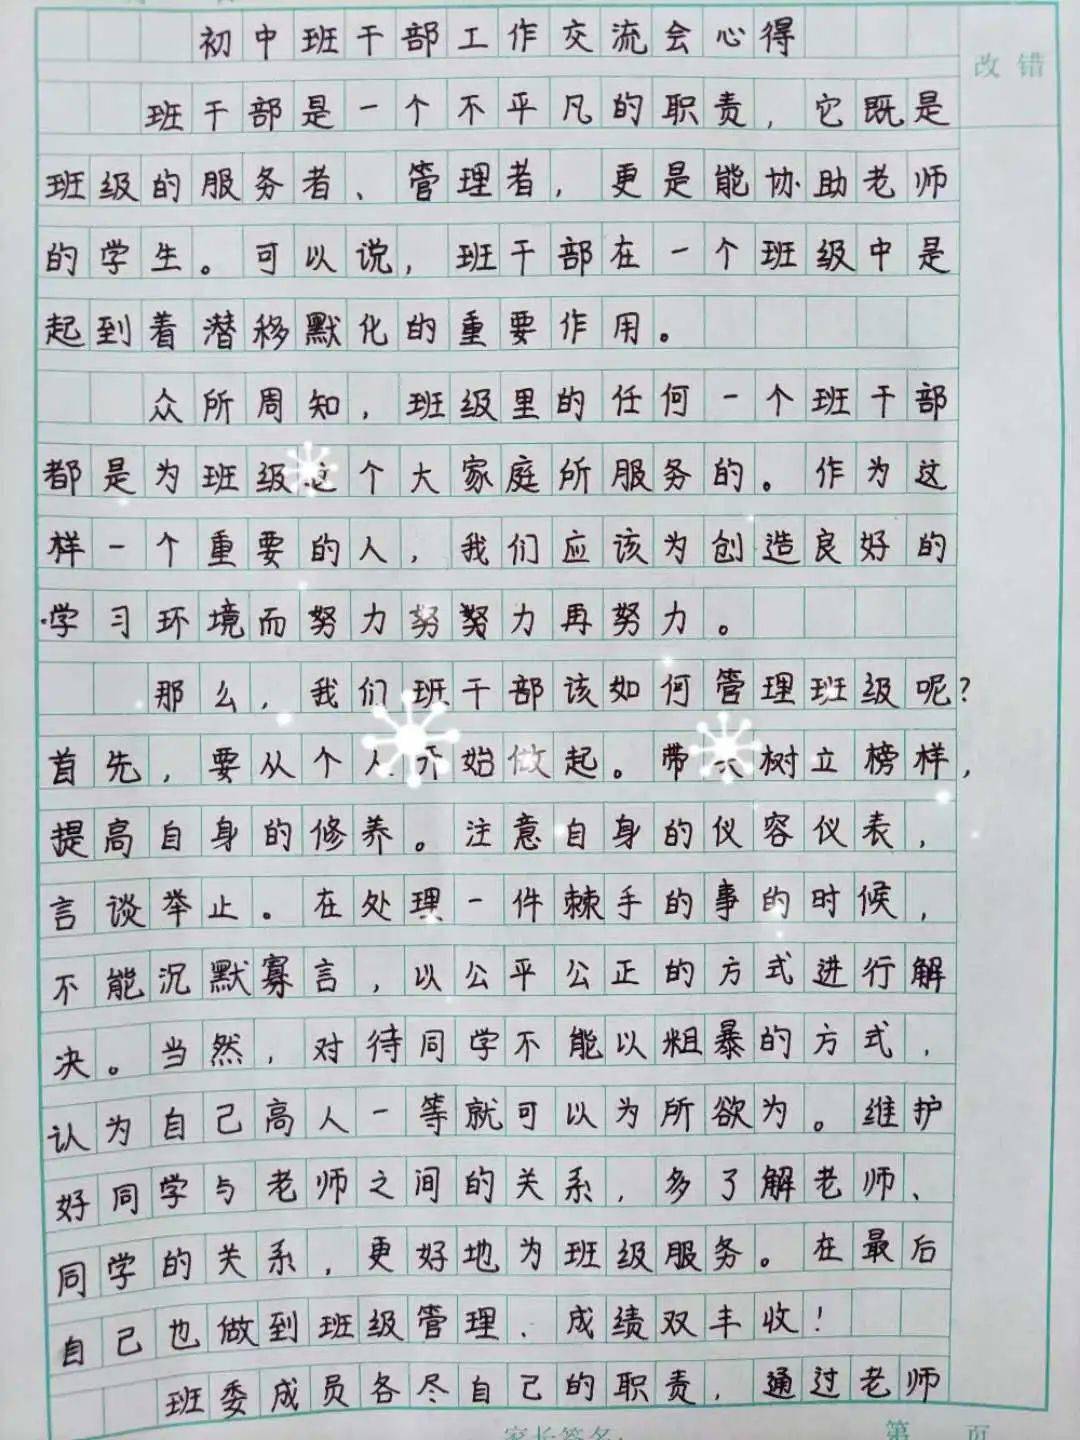 初中班干部工作交流会心得
改错
班干部是一个不平凡的职责，它既是
班级的服务者、管理者，更是能协助老师
的学生。可以说，班干部在一个班级中是
起到着潜移默化的重要作用。
众所周知，班级里的任何一个班干部
都是为班级这个大家庭所服务的。作为这
样一个重要的人，我们应该为创造良好的
学习环境而努力努努力再努力。
那么，我们班干部该如何管理班级呢？
首先，要从个人开始做起。带头树立榜样，
提高自身的修养。注意自身的仪容仪表，
言谈举止。在处理一件棘手的事的时候，
不能沉默寡言，以公平公正的方式进行解
决。当然，对待同学不能以粗暴的方式，
认为自己高人一等就可以为所欲为。维护
好同学与老师之间的关系，多了解老师、
同学的关系，更好地为班级服务。在最后
自己也做到班级管理、成绩双丰收！
班委成员各尽自己的职责，通过老师
家长签名：
第 页